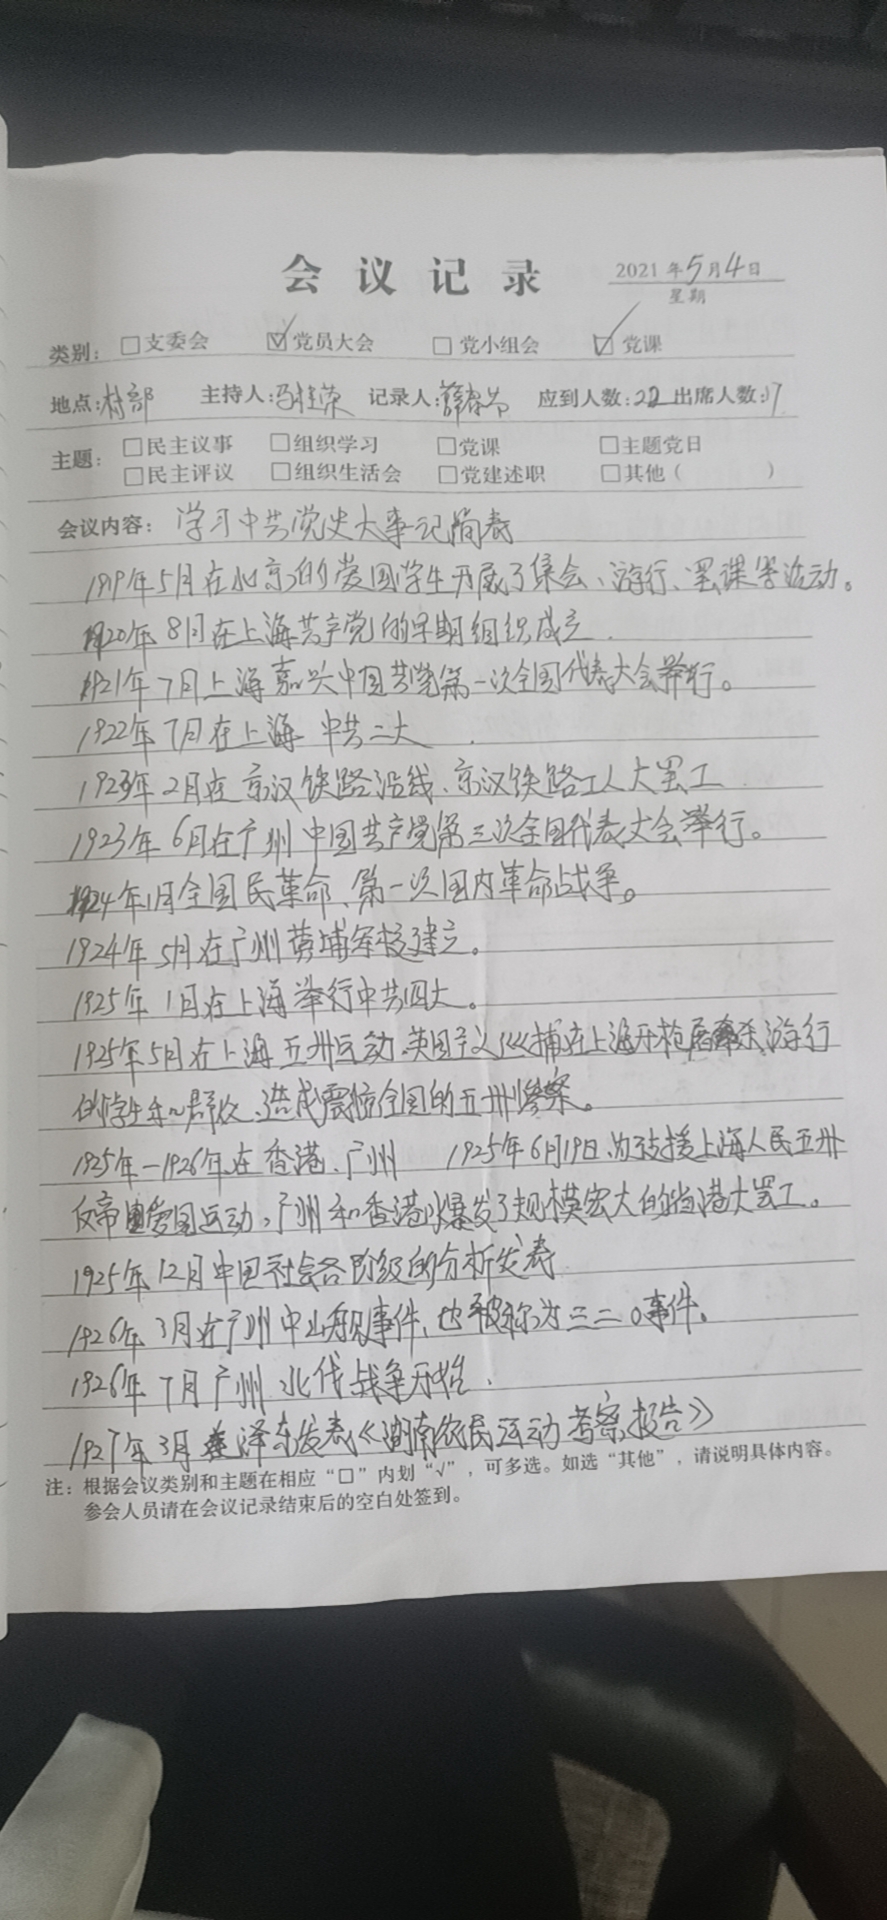 会议记录
2021年5月4日
星期
类别：□支委会 ☑党员大会 □党小组会 ☑党课
地点：村部 主持人：马桂荣 记录人：薛春 应到人数：22 出席人数：17
主题：□民主议事 □组织学习 □党课 □主题党日
□民主评议 □组织生活会 □党建述职 □其他（ ）
会议内容：学习中共党史大事记简表
1919年5月在北京的爱国学生开展了集会、游行、罢课等活动。
1920年8月在上海共产党的早期组织成立.
1921年7月上海嘉兴中国共党第一次全国代表大会举行。
1922年7月在上海 中共二大.
1923年2月在京汉铁路沿线、京汉铁路工人大罢工
1923年6月在广州中国共产党第三次全国代表大会举行。
1924年1月全国民革命、第一次国内革命战争。
1924年5月在广州黄埔军校建立。
1925年1月在上海举行中共四大。
1925年5月在上海五卅运动、英国主义巡捕在上海开枪屠杀游行
的学生和群众、造成震惊全国的五卅惨案。
1925年—1926年在香港、广州 1925年6月19日、为支援上海人民五卅
反帝爱国运动，广州和香港爆发了规模宏大的省港大罢工。
1925年12月中国社会各阶级的分析发表
1926年3月在广州中山舰事件、也被称为三二0事件。
1926年7月广州北伐战争开始.
1927年3月毛泽东发表《湖南农民运动考察报告》
注：根据会议类别和主题在相应“□”内划“√”，可多选。如选“其他”，请说明具体内容。
参会人员请在会议记录结束后的空白处签到。